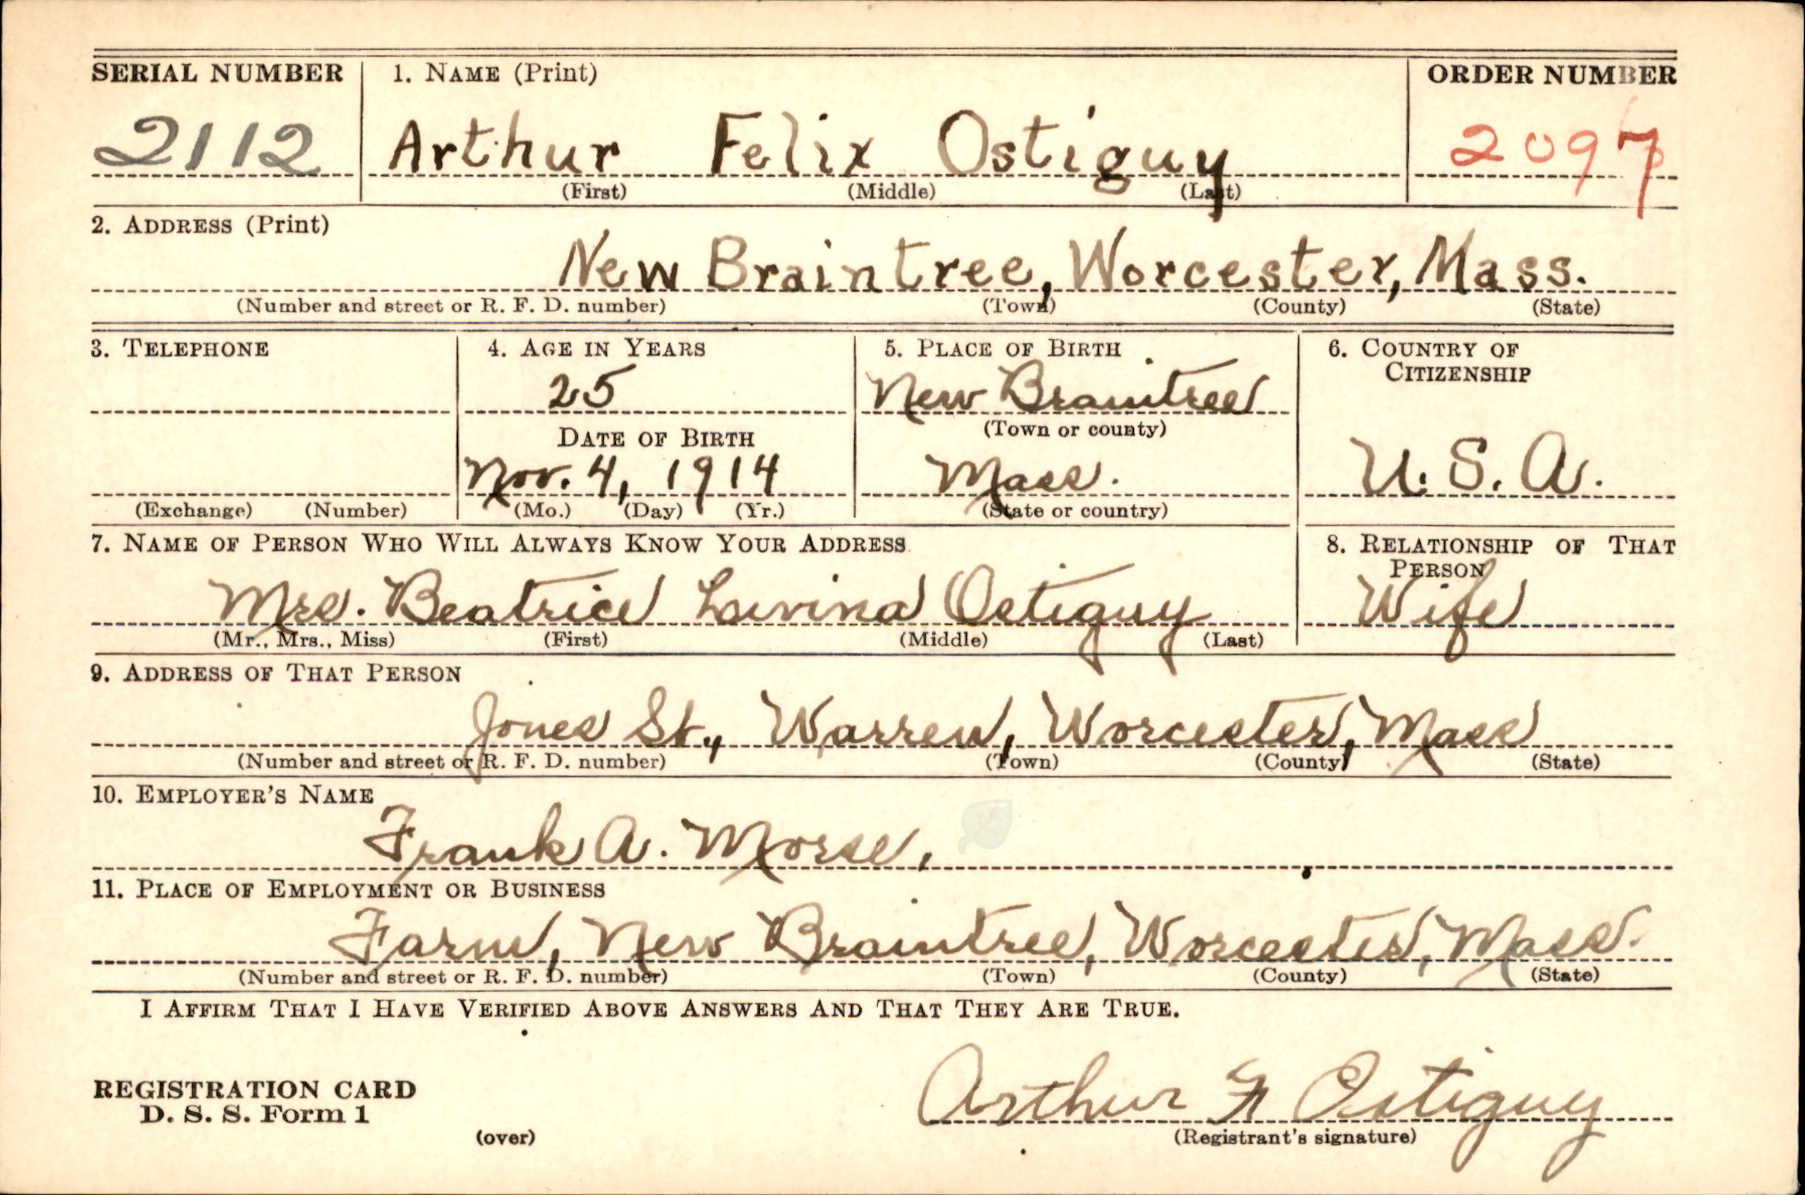 SERIAL NUMBER 1. NAME (Print) ORDER NUMBER
2112 Arthur Felix Ostiguy 2097
(First) (Middle) (Last)
2. ADDRESS (Print)
New Braintree, Worcester, Mass.
(Number and street or R. F. D. number) (Town) (County) (State)
3. TELEPHONE 4. AGE IN YEARS 5. PLACE OF BIRTH 6. COUNTRY OF CITIZENSHIP
25 New Braintree
DATE OF BIRTH (Town or county)
Nov. 4, 1914 Mass. U. S. A.
(Exchange) (Number) (Mo.) (Day) (Yr.) (State or country)
7. NAME OF PERSON WHO WILL ALWAYS KNOW YOUR ADDRESS 8. RELATIONSHIP OF THAT PERSON
Mrs. Beatrice Lavina Ostiguy Wife
(Mr., Mrs., Miss) (First) (Middle) (Last)
9. ADDRESS OF THAT PERSON
Jones St., Warren, Worcester, Mass
(Number and street or R. F. D. number) (Town) (County) (State)
10. EMPLOYER'S NAME
Frank A. Morse,
11. PLACE OF EMPLOYMENT OR BUSINESS
Farm, New Braintree, Worcester, Mass.
(Number and street or R. F. D. number) (Town) (County) (State)
I AFFIRM THAT I HAVE VERIFIED ABOVE ANSWERS AND THAT THEY ARE TRUE.
REGISTRATION CARD
D. S. S. Form 1 Arthur F Ostiguy
(over) (Registrant's signature)